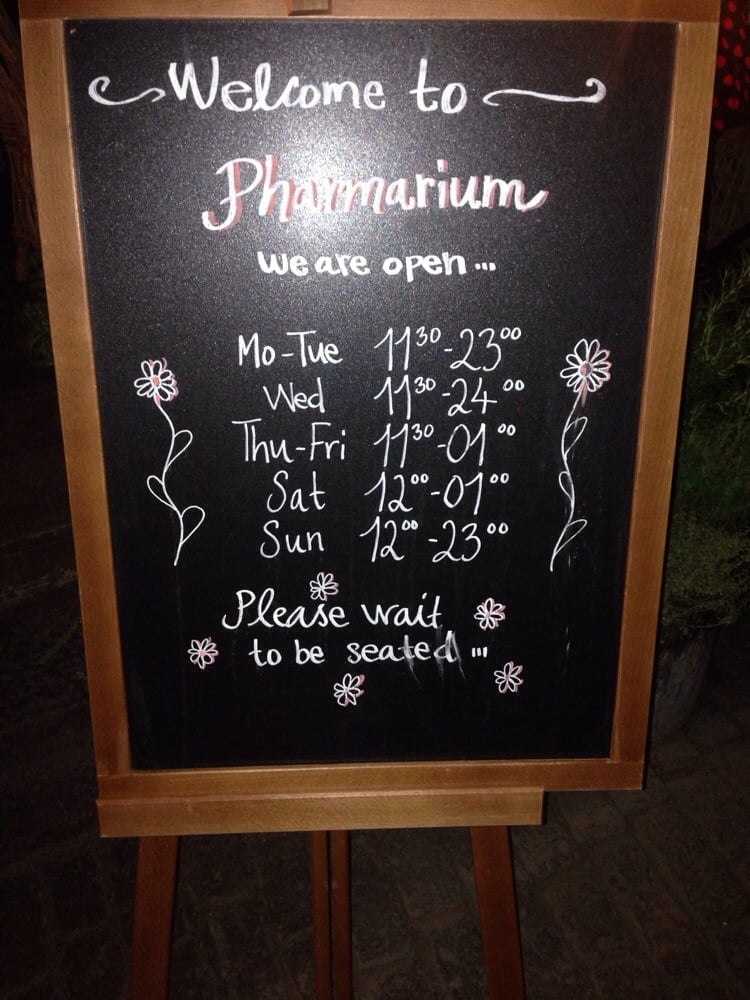 Welcome to
Pharmarium
we are open ...
Mo-Tue 11³⁰-23⁰⁰
Wed 11³⁰-24⁰⁰
Thu-Fri 11³⁰-01⁰⁰
Sat 12⁰⁰-01⁰⁰
Sun 12⁰⁰-23⁰⁰
Please wait
to be seated ...